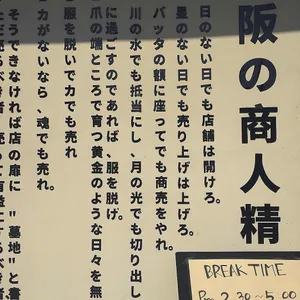 阪の商人精
日のない日でも店舗は開けろ。
星のない日でも売り上げは上げろ。
バッタの額に座ってでも商売をやれ。
川の水でも抵当にし、月の光でも切り出し
に過ごすのであれば、服を脱げ。
爪の端ところで育つ黄金のような日々を無
服を脱いで力でも売れ
力がないなら、魂でも売れ。
そうできなければ店の扉に "墓地" と書
BREAK TIME
Pm 2:30~5:00